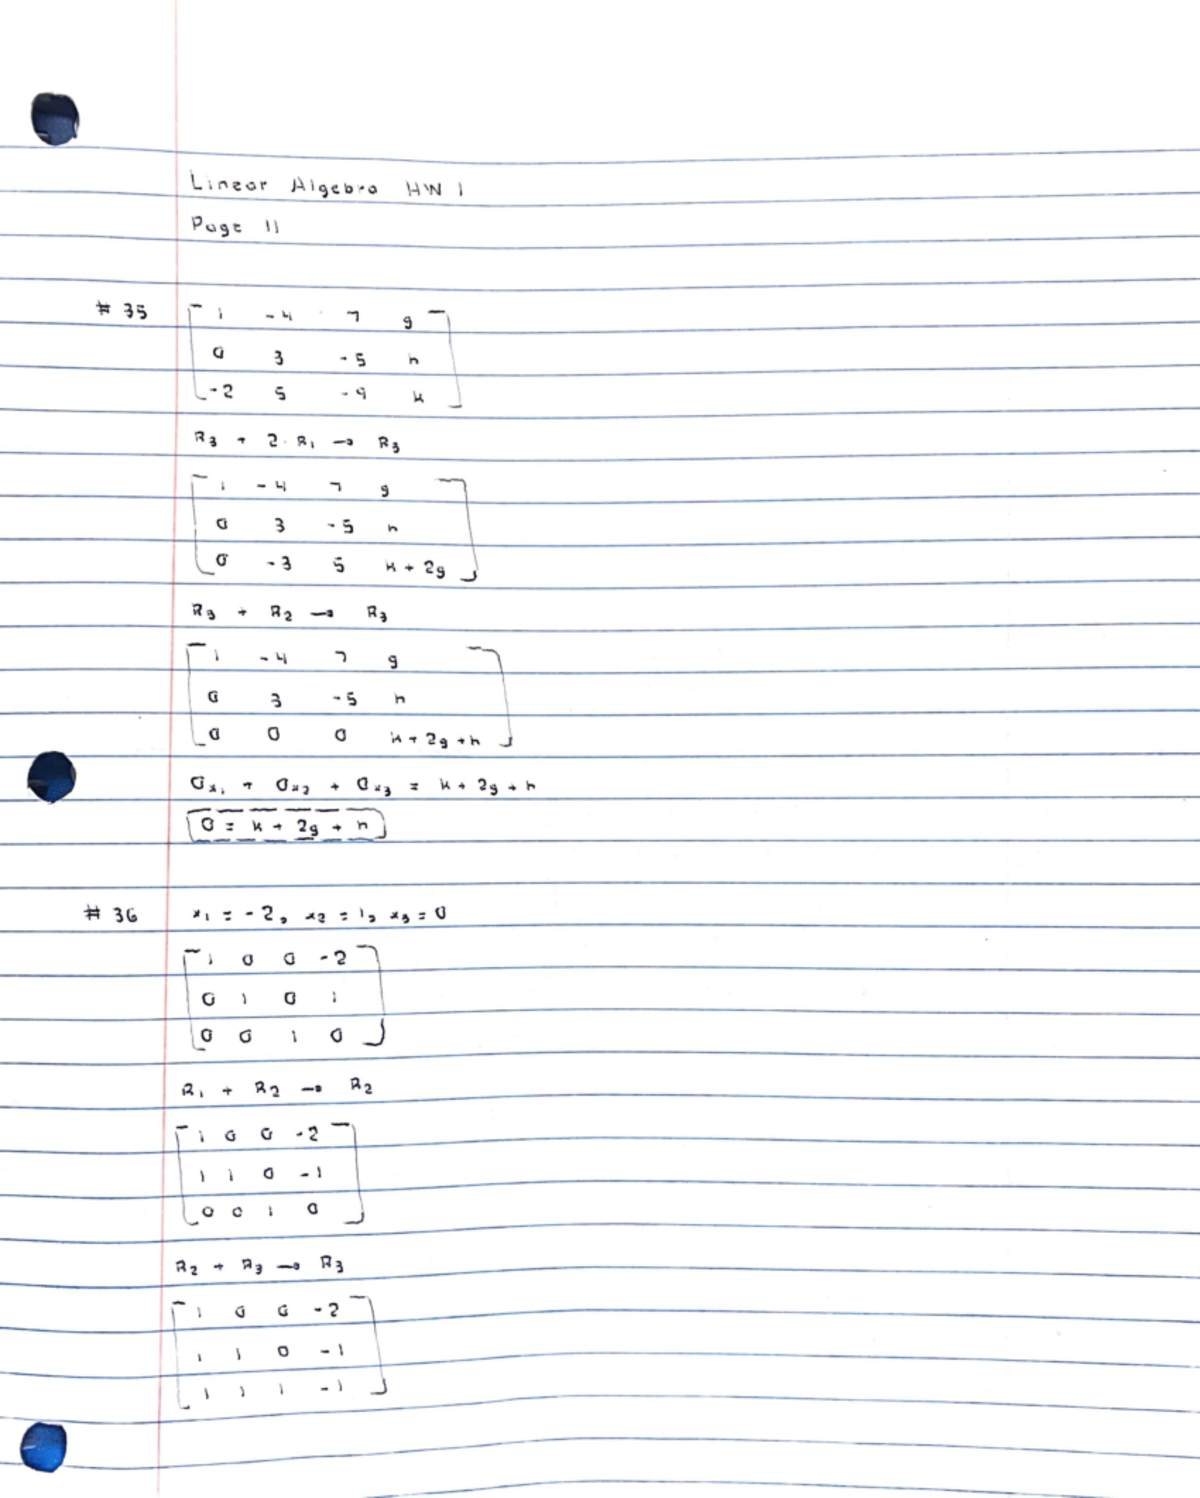 Linear Algebra HW 1
Page 11
# 35
1 -4 7 g
0 3 -5 h
-2 5 -9 k
R3 + 2·R1 → R3
1 -4 7 g
0 3 -5 h
0 -3 5 k + 2g
R3 + R2 → R3
1 -4 7 g
0 3 -5 h
0 0 0 k + 2g + h
0x1 + 0x2 + 0x3 = k + 2g + h
0 = k + 2g + h
# 36 x1 = -2, x2 = 1, x3 = 0
1 0 0 -2
0 1 0 1
0 0 1 0
R1 + R2 → R2
1 0 0 -2
1 1 0 -1
0 0 1 0
R2 + R3 → R3
1 0 0 -2
1 1 0 -1
1 1 1 -1